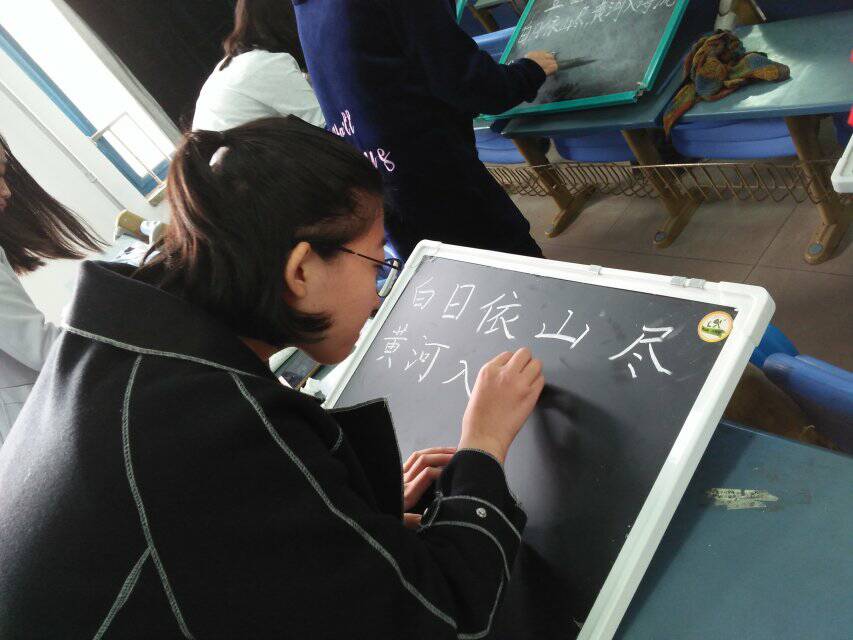 白日依山尽
黄河入
白日依山尽,黄河入海流